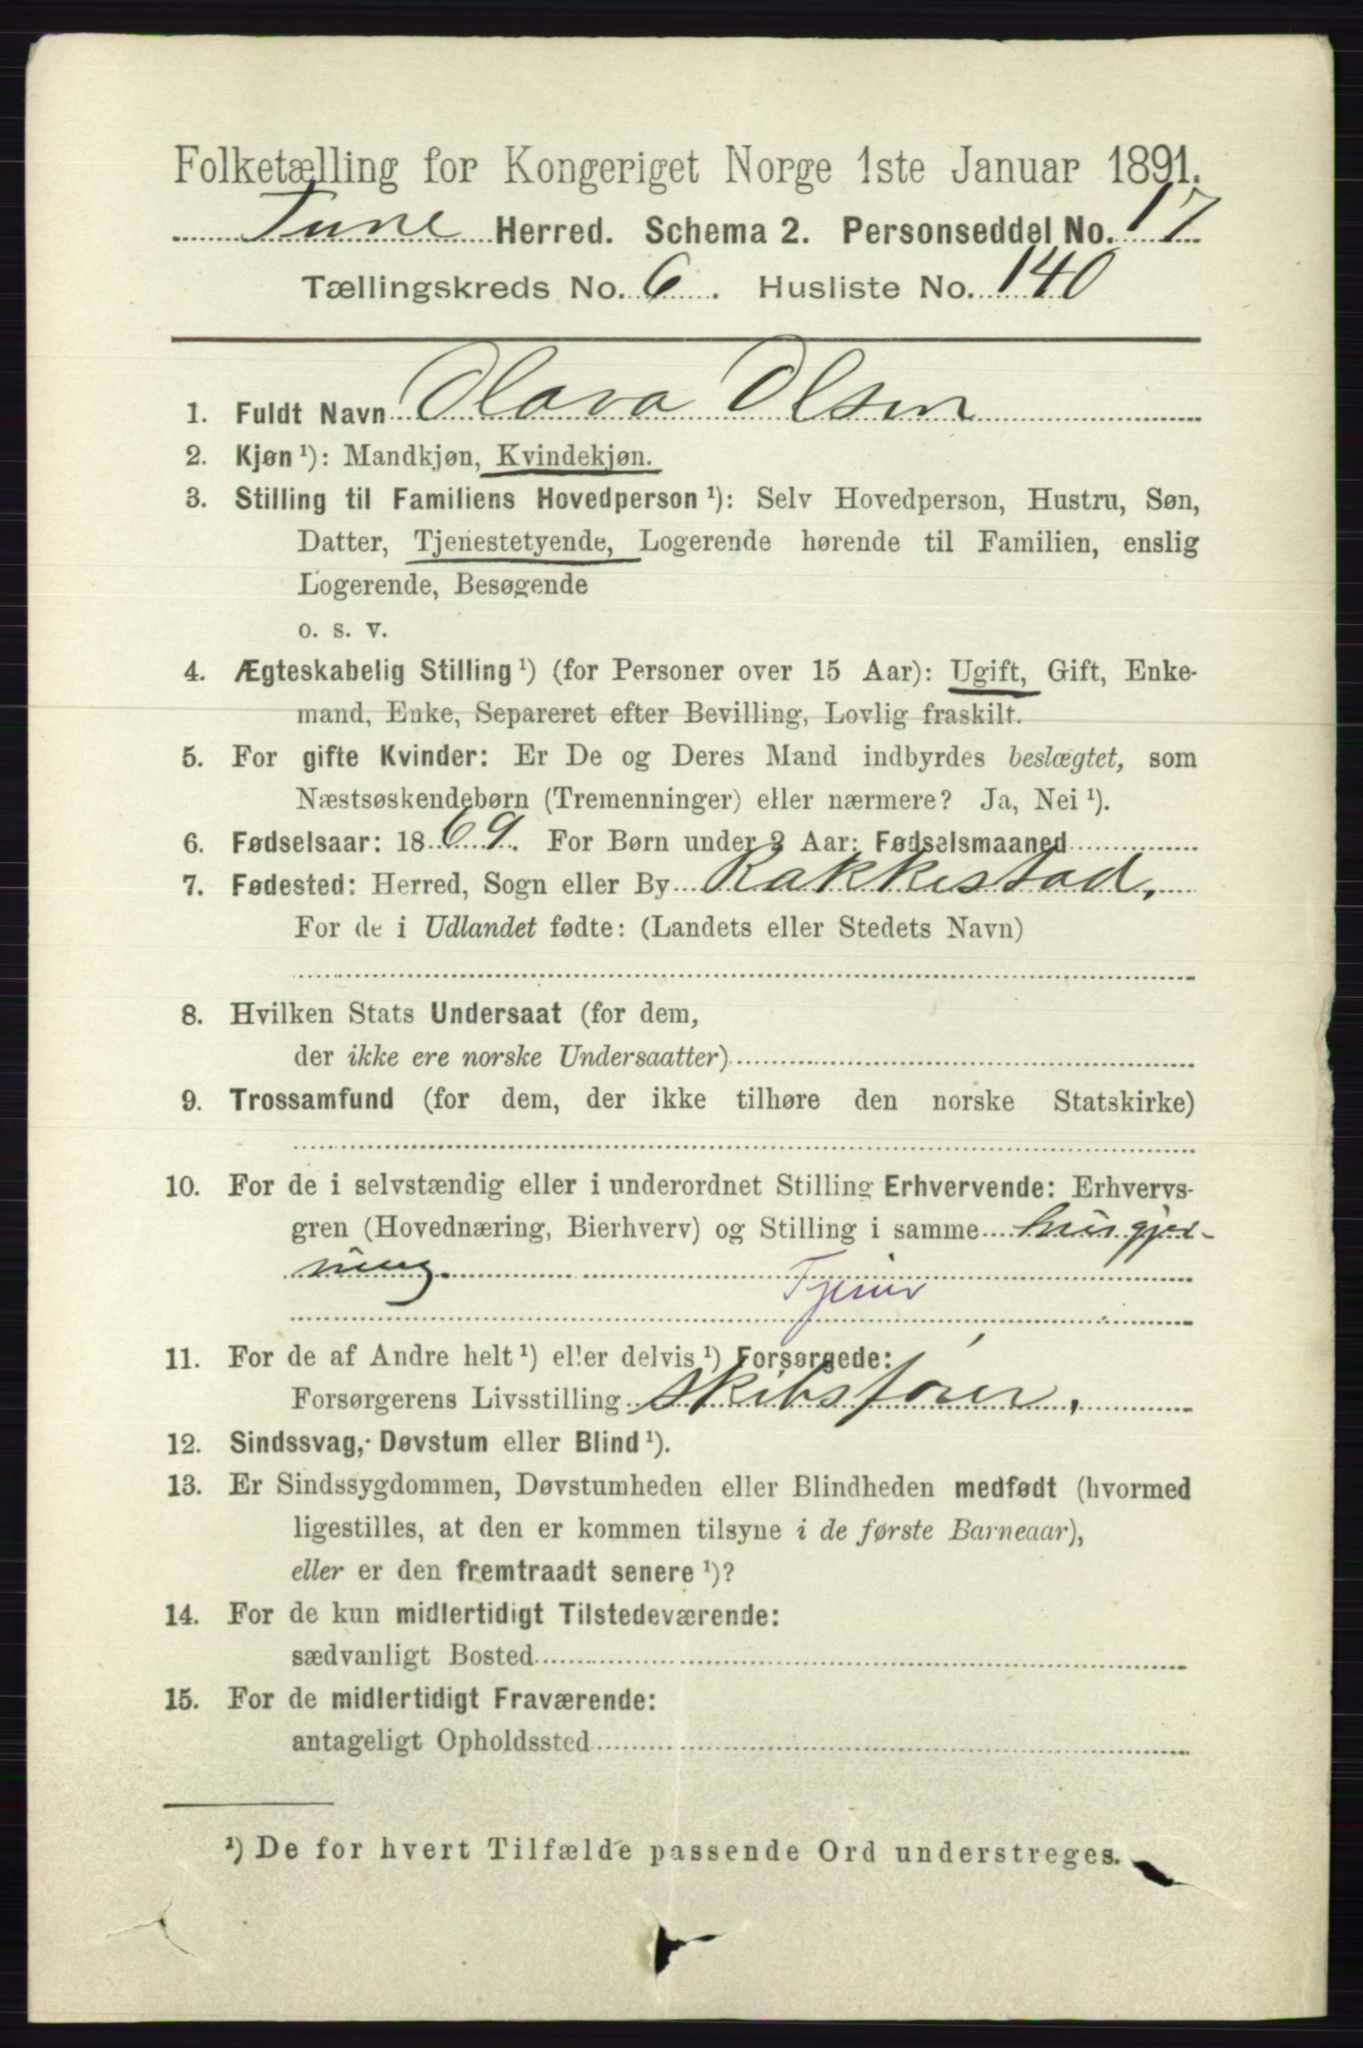 Folketælling for Kongeriget Norge 1ste Januar 1891.
Tune Herred. Schema 2. Personseddel No. 17
Tællingskreds No. 6. Husliste No. 140
1. Fuldt Navn Olava Olsen
2. Kjøn ¹): Mandkjøn, Kvindekjøn.
3. Stilling til Familiens Hovedperson ¹): Selv Hovedperson, Hustru, Søn,
Datter, Tjenestetyende, Logerende hørende til Familien, enslig
Logerende, Besøgende
o. s. v.
4. Ægteskabelig Stilling ¹) (for Personer over 15 Aar): Ugift, Gift, Enke-
mand, Enke, Separeret efter Bevilling, Lovlig fraskilt.
5. For gifte Kvinder: Er De og Deres Mand indbyrdes beslægtet, som
Næstsøskendebørn (Tremenninger) eller nærmere? Ja, Nei ¹).
6. Fødselsaar: 1869. For Børn under 2 Aar: Fødselsmaaned
7. Fødested: Herred, Sogn eller By Rakkestad.
For de i Udlandet fødte: (Landets eller Stedets Navn)
8. Hvilken Stats Undersaat (for dem,
der ikke ere norske Undersaatter)
9. Trossamfund (for dem, der ikke tilhøre den norske Statskirke)
10. For de i selvstændig eller i underordnet Stilling Erhvervende: Erhvervs-
gren (Hovednæring, Bierhverv) og Stilling i samme husgjer-
ning.
11. For de af Andre helt ¹) eller delvis ¹) Forsørgede:
Forsørgerens Livsstilling skibsfører,
12. Sindssvag, Døvstum eller Blind ¹).
13. Er Sindssygdommen, Døvstumheden eller Blindheden medfødt (hvormed
ligestilles, at den er kommen tilsyne i de første Barneaar),
eller er den fremtraadt senere ¹)?
14. For de kun midlertidigt Tilstedeværende:
sædvanligt Bosted
15. For de midlertidigt Fraværende:
antageligt Opholdssted
¹) De for hvert Tilfælde passende Ord understreges.